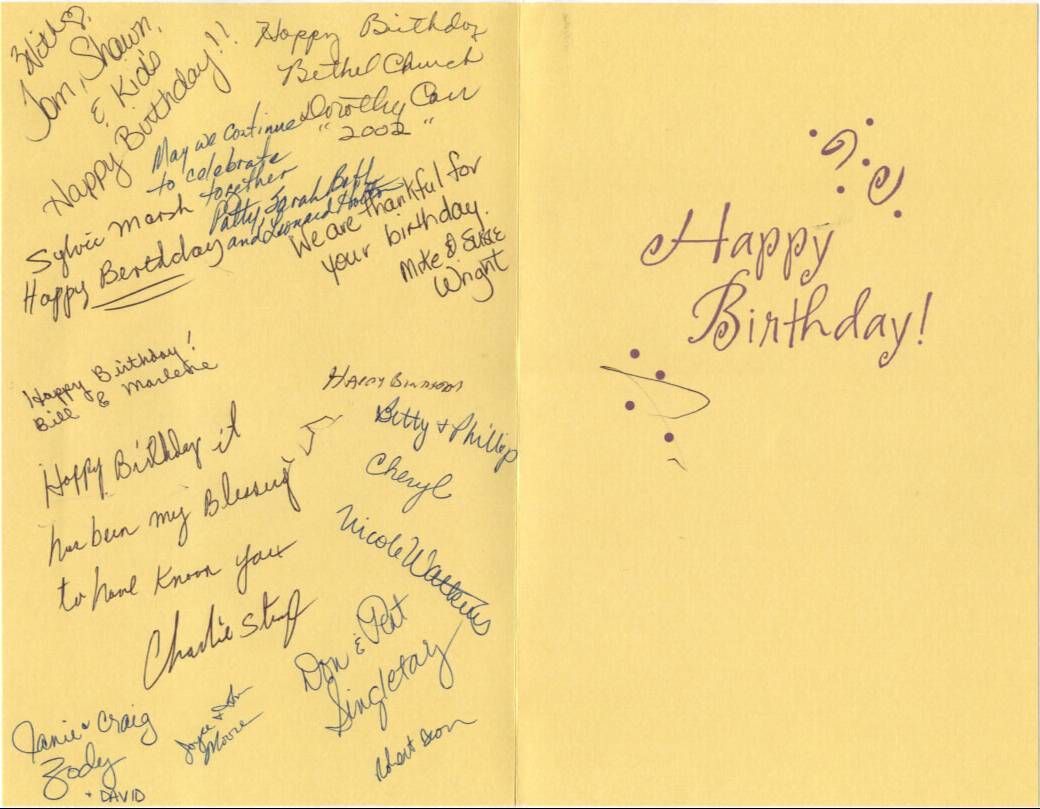 With ♡,
Tom, Shawn,
& Kids
Happy Birthday!!
Happy Birthday
Bethel Church
Dorothy Carr
"2002"
May we continue
to celebrate
together
Patty, Sarah Beth
and Leonard
Sylvic Marsh
Happy Berthday
We are thankful for
your birthday.
Mike & Susie
Wright
Happy Birthday!
Bill & Marlene
Happy Birthday it
has been my Blessing
to have known you
Charlie
Happy Birthday
Betty & Phillip
Cheryl
Nicole Watkins
Don & Pat
Singletary
Janie & Craig
Zody
+ DAVID
Joyce &
Moore
Robert
Happy
Birthday!